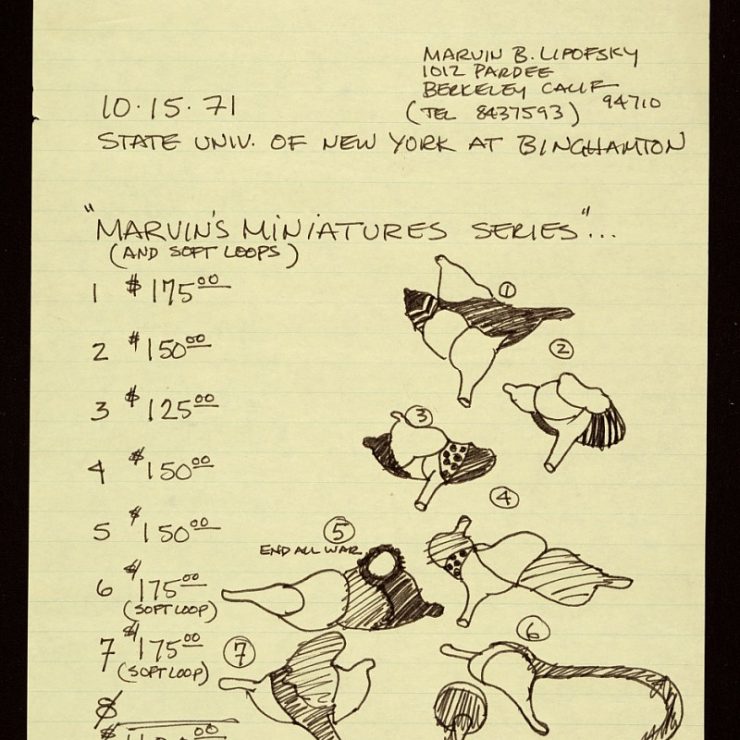 MARVIN B. LIPOFSKY
1012 PARDEE
BERKELEY CALIF
94710
(TEL 8437593)
10·15·71
STATE UNIV. OF NEW YORK AT BINGHAMTON
"MARVIN'S MINIATURES SERIES"...
(AND SOFT LOOPS)
1 $175.00
2 $150.00
3 $125.00
4 $150.00
5 $150.00
6 $175.00
(SOFT LOOP)
7 $175.00
(SOFT LOOP)
8
1
2
3
4
5
END ALL WAR
6
7